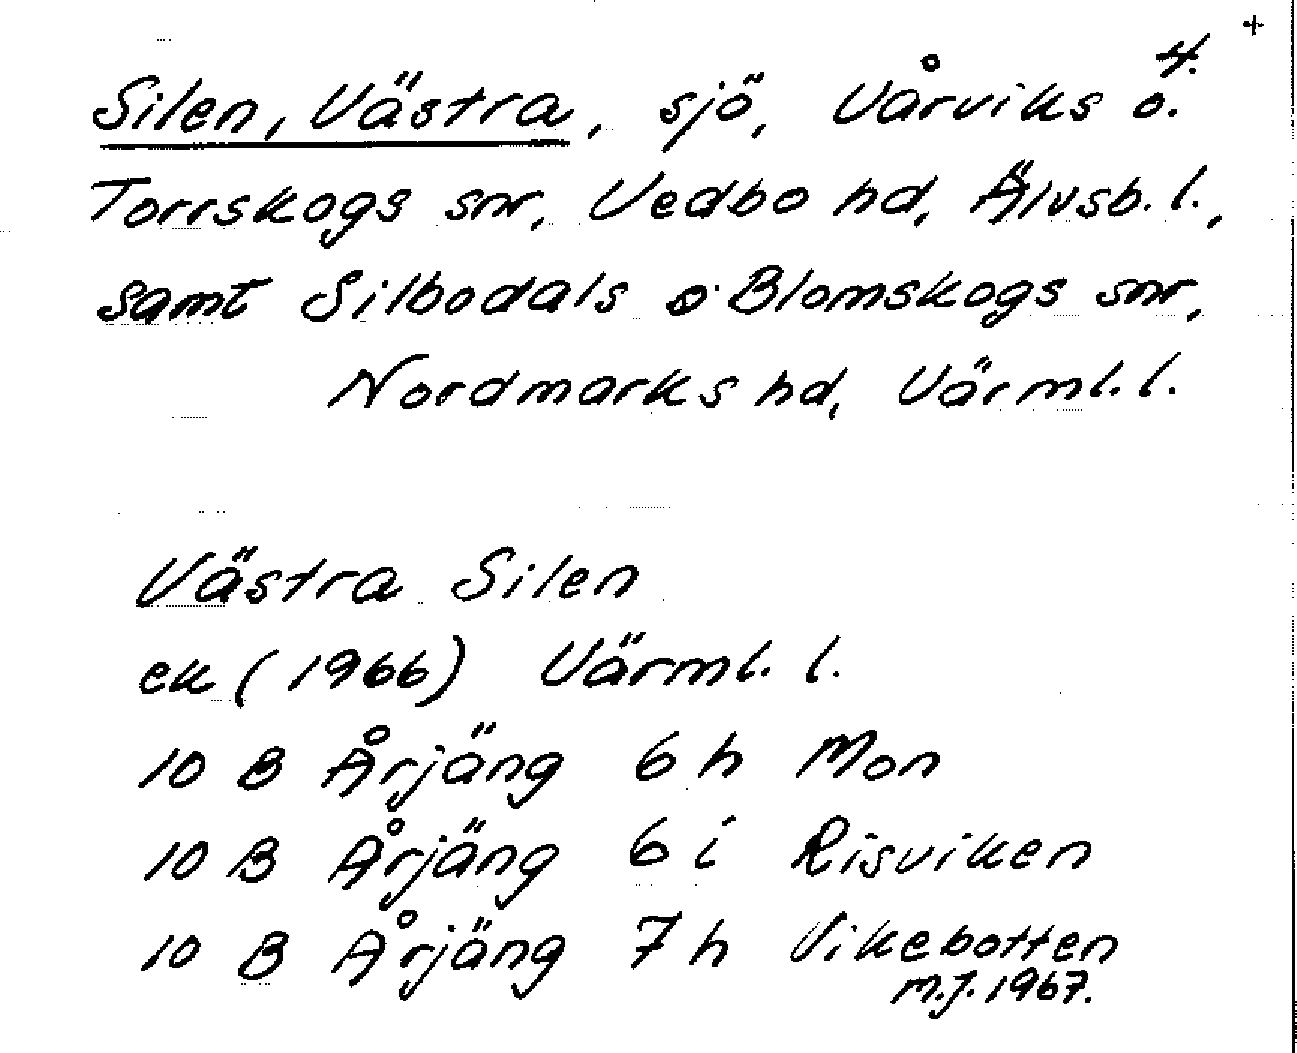 +
4.
Silen, Västra, sjö, Vårviks o.
Torrskogs snr, Vedbo hd, Älvsb. l.,
samt Silbodals o. Blomskogs snr,
Nordmarks hd, Värml. l.
Västra Silen
ek (1966) Värml. l.
10 B Årjäng 6 h Mon
10 B Årjäng 6 i Risviken
10 B Årjäng 7 h Vikebotten
M.J. 1967.